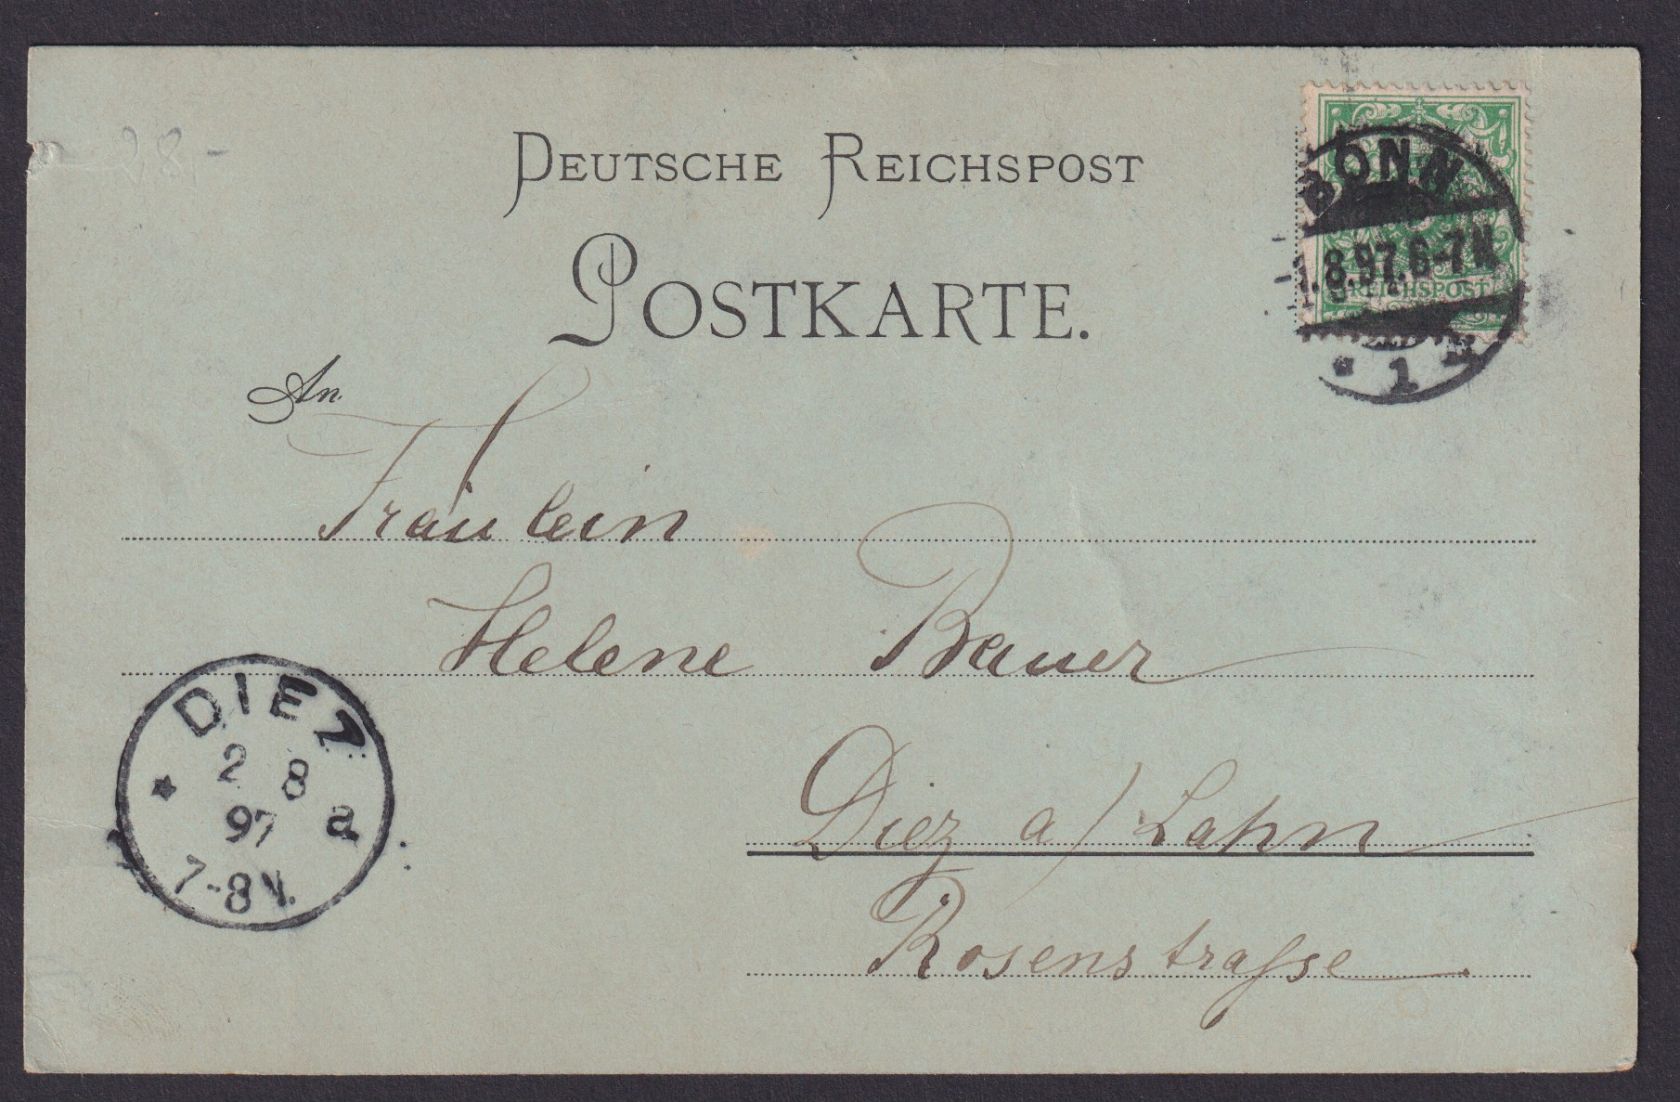 28,-
DEUTSCHE REICHSPOST
POSTKARTE.
BONN
1.8.97.6-7N
REICHSPOST
* 1
An
Fräulein
Helene Bauer
Diez a/Lahn
Rosenstrasse
DIEZ
* 2 8 a
97
7-8V.